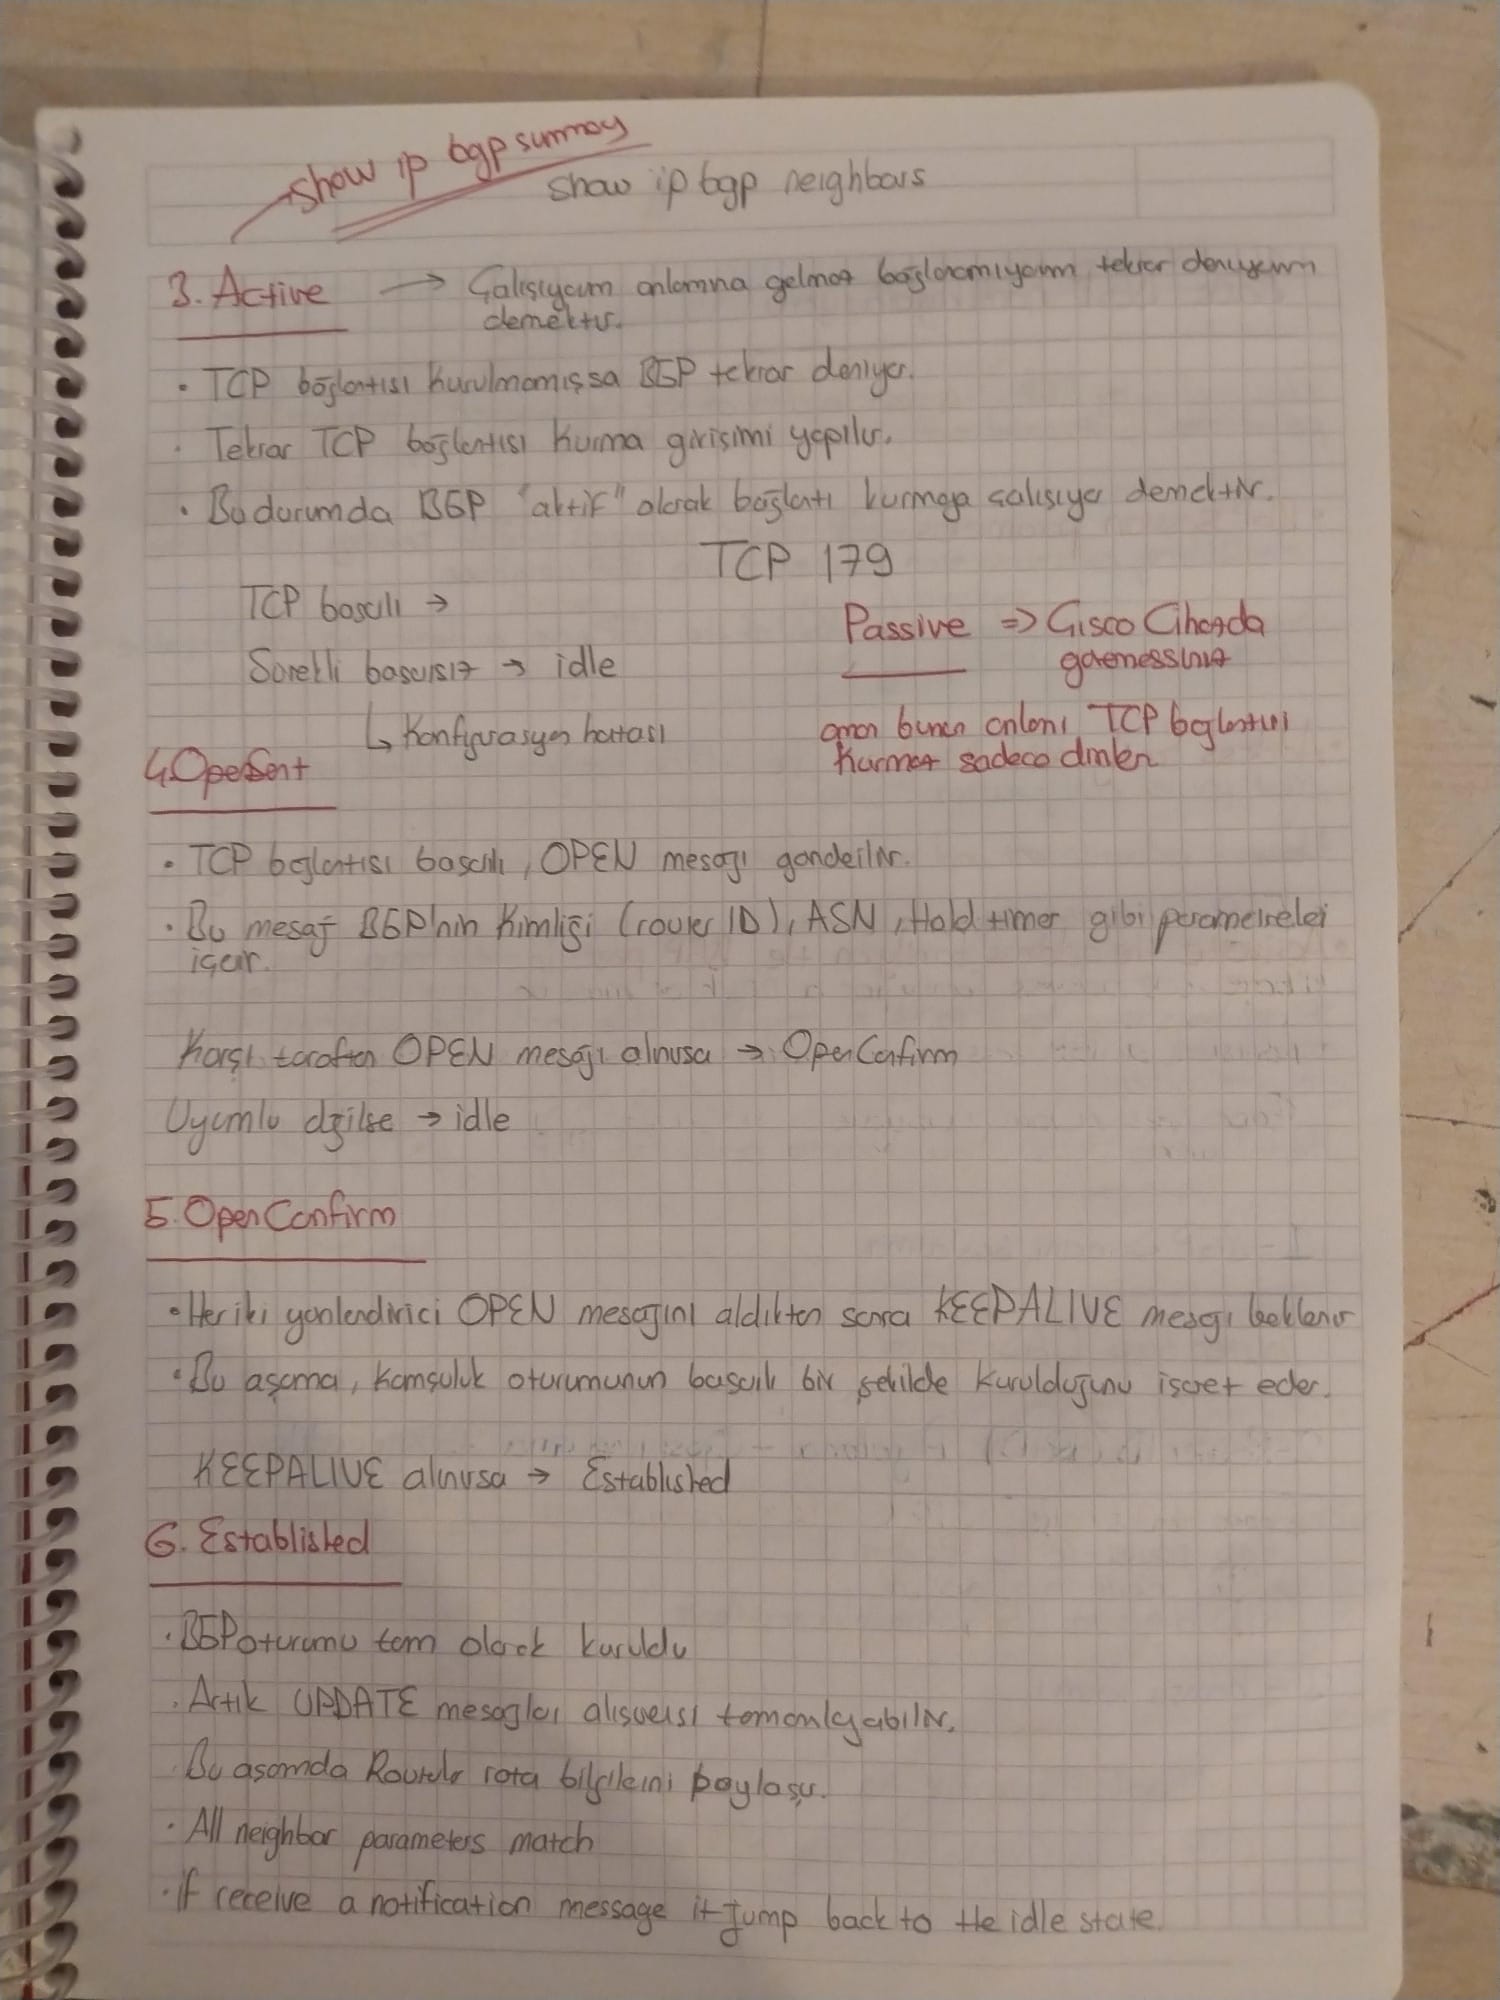 show ip bgp summary
show ip bgp neighbors
3. Active → Çalışıyorum anlamına gelmez bağlanamıyorum tekrar deniyorum
demektir.
• TCP bağlantısı kurulmamışsa BGP tekrar deniyor.
• Tekrar TCP bağlantısı kurma girişimi yapılır.
• Bu durumda BGP "aktif" olarak bağlantı kurmaya çalışıyor demektir.
TCP 179
TCP başarılı →
Passive => Cisco Cihazda
göremessiniz
Sürekli başarısız → idle
↳ Konfigurasyon hatası
ama bunun anlamı TCP bağlantısı
kurmaz sadece dinler
4. OpenSent
• TCP bağlantısı başarılı, OPEN mesajı gönderilir.
• Bu mesaj BGP'nin kimliği (router ID), ASN, Hold timer gibi parametreleri
içerir.
Karşı taraftan OPEN mesajı alınırsa → OpenConfirm
Uyumlu değilse → idle
5. OpenConfirm
• Her iki yönlendirici OPEN mesajını aldıktan sonra KEEPALIVE mesajı beklenir
• Bu aşama, komşuluk oturumunun başarılı bir şekilde kurulduğunu işaret eder.
KEEPALIVE alınırsa → Established
6. Established
• BGP oturumu tam olarak kuruldu
• Artık UPDATE mesajları alışverişi tamamlayabilir.
Bu aşamada Routerlar rota bilgilerini paylaşır.
• All neighbor parameters match
• If receive a notification message it jump back to the idle state.